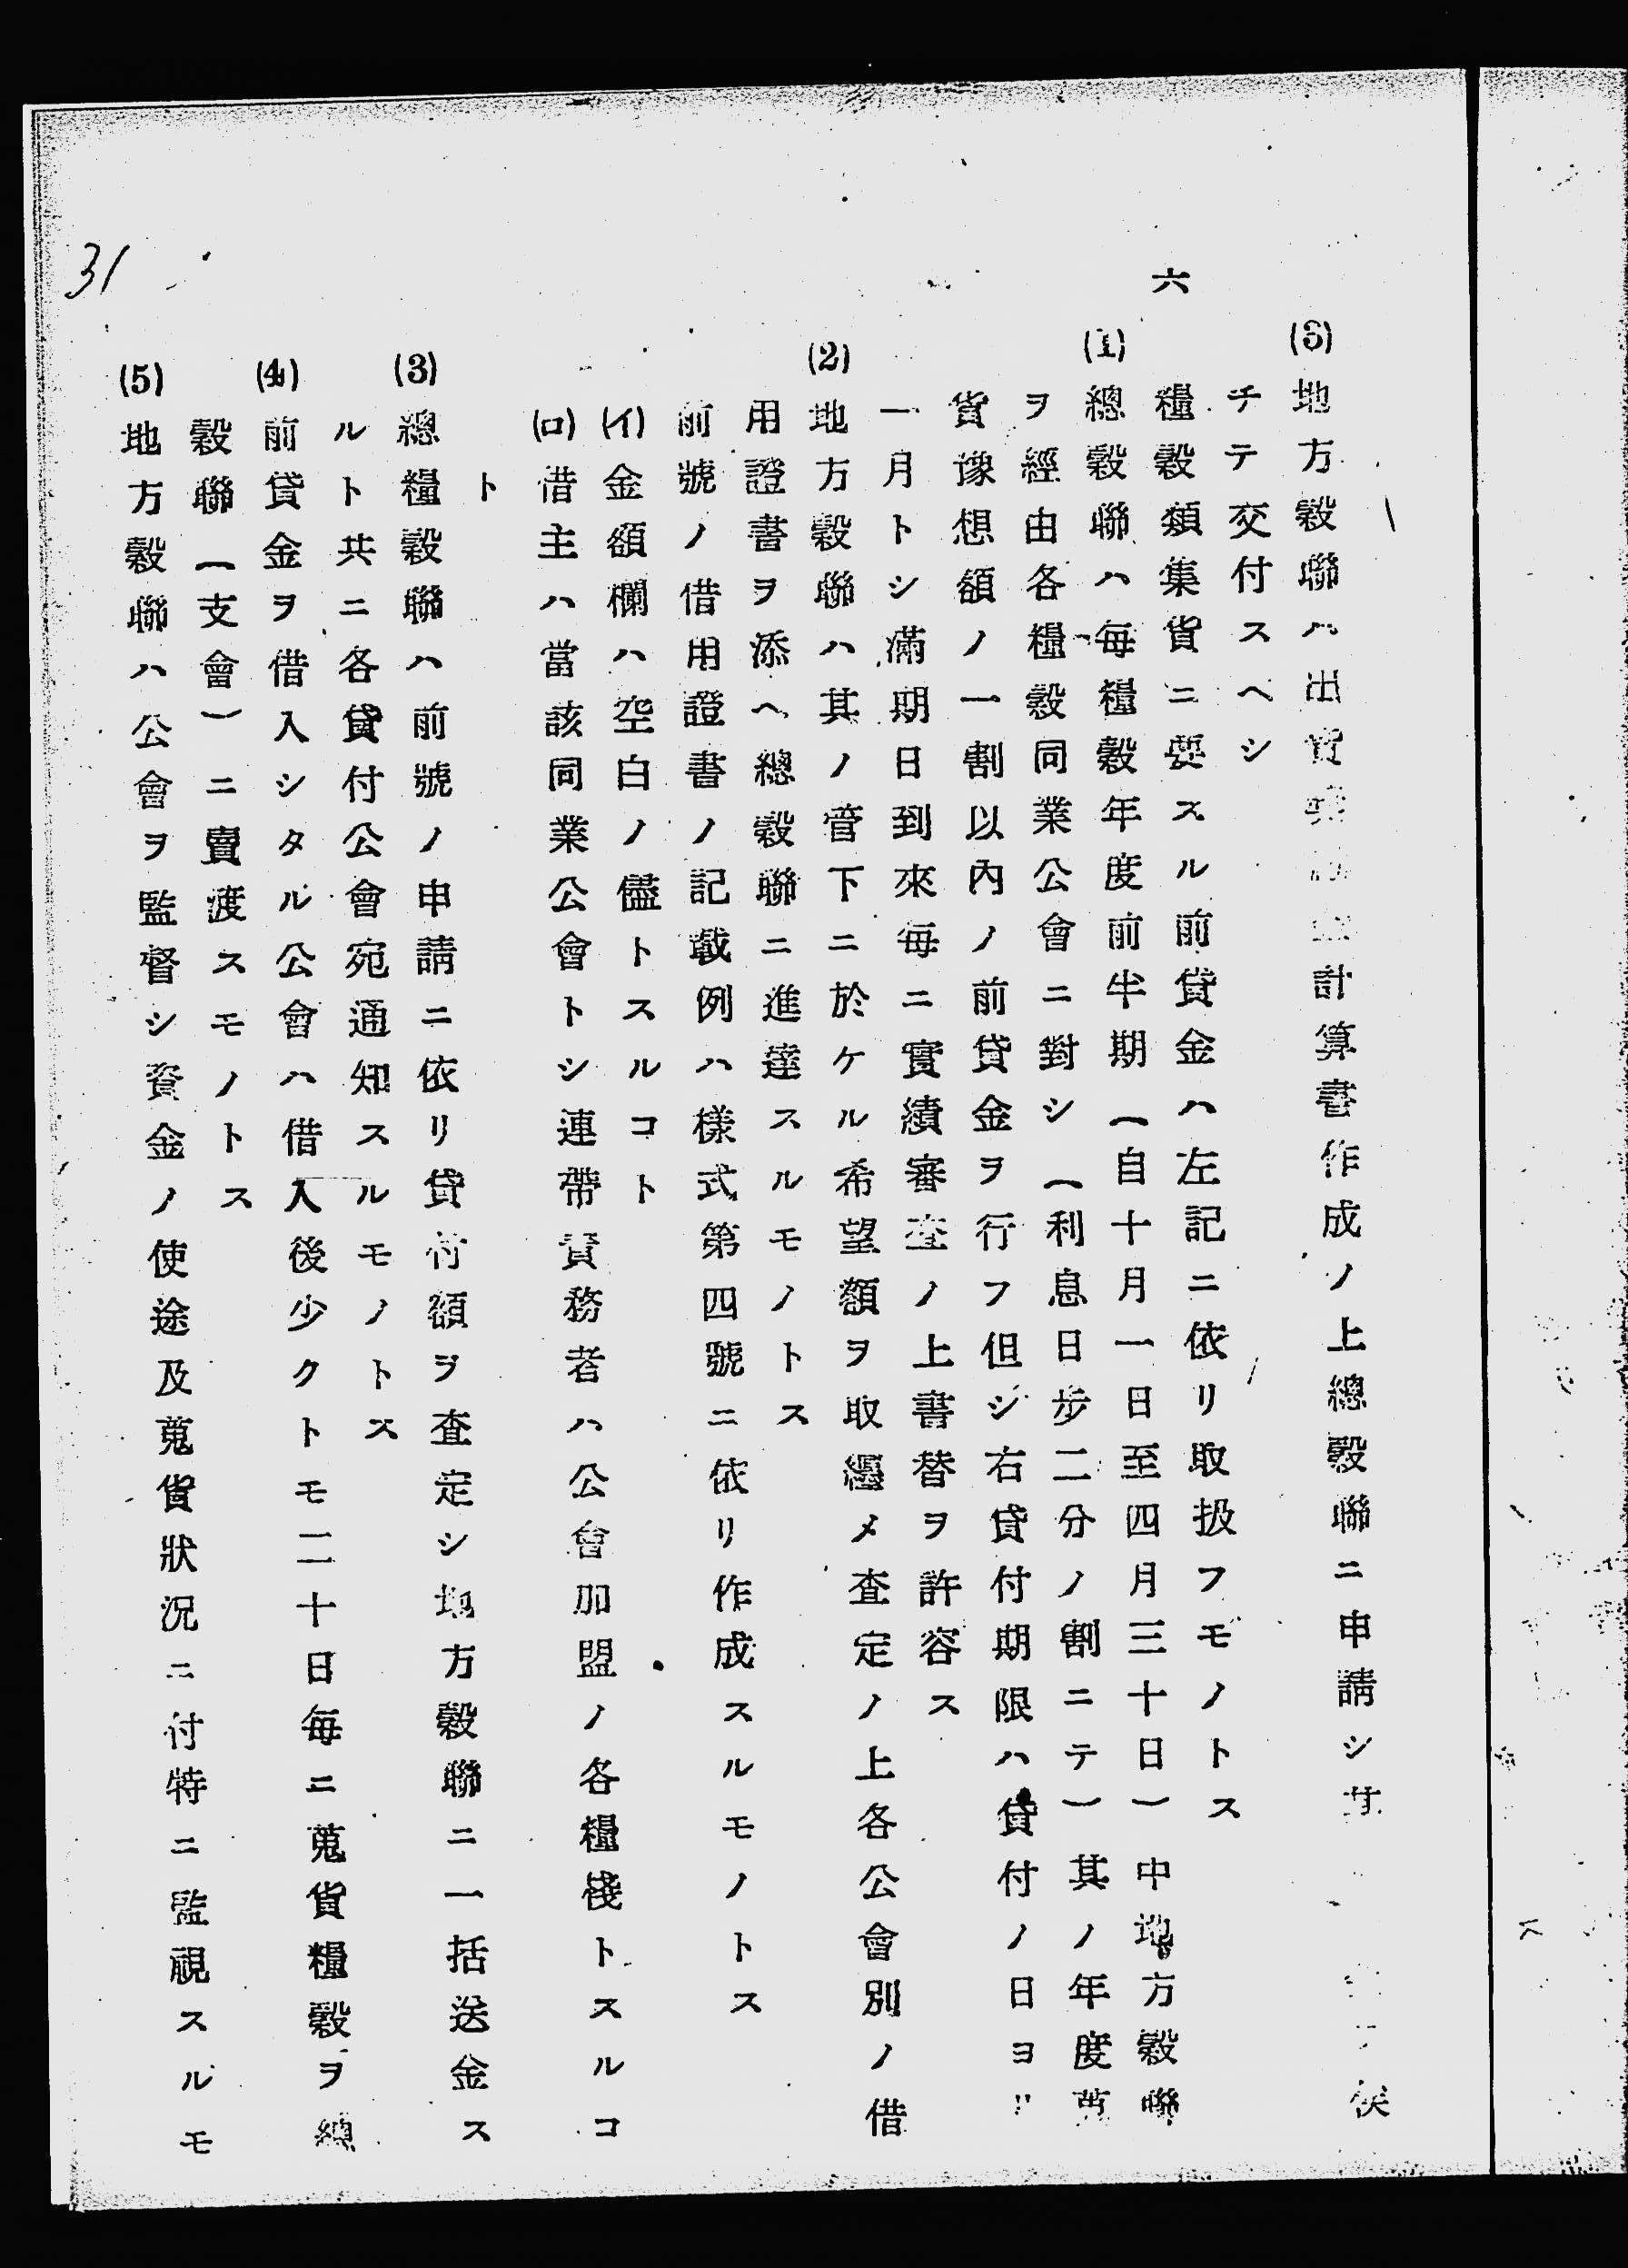 (6)地方穀聯ハ出計算書作成ノ上總穀聯ニ申請シ俟
チテ交付スヘシ
六
糧穀類集貨ニ要スル前貸金ハ左記ニ依リ取扱フモノトス
(1)總穀聯ハ每糧穀年度前半期（自十月一日至四月三十日）中地方穀聯
ヲ經由各糧穀同業公會ニ對シ（利息日步二分ノ割ニテ）其ノ年度蒐
貨豫想額ノ一割以內ノ前貸金ヲ行フ但シ右貸付期限ハ貸付ノ日ヨリ
一月トシ滿期日到來每ニ實績審査ノ上書替ヲ許容ス
(2)地方穀聯ハ其ノ管下ニ於ケル希望額ヲ取纒メ査定ノ上各公會別ノ借
用證書ヲ添ヘ總穀聯ニ進達スルモノトス
前號ノ借用證書ノ記載例ハ樣式第四號ニ依リ作成スルモノトス
(イ)金額欄ハ空白ノ儘トスルコト
(ロ)借主ハ當該同業公會トシ連帶責務者ハ公會加盟ノ各糧棧トスルコ
ト
(3)總糧穀聯ハ前號ノ申請ニ依リ貸付額ヲ査定シ地方穀聯ニ一括送金ス
ルト共ニ各貸付公會宛通知スルモノトス
(4)前貸金ヲ借入シタル公會ハ借入後少クトモ二十日每ニ蒐貨糧穀ヲ總
穀聯（支會）ニ賣渡スモノトス
(5)地方穀聯ハ公會ヲ監督シ資金ノ使途及蒐貨狀況ニ付特ニ監視スルモ
31